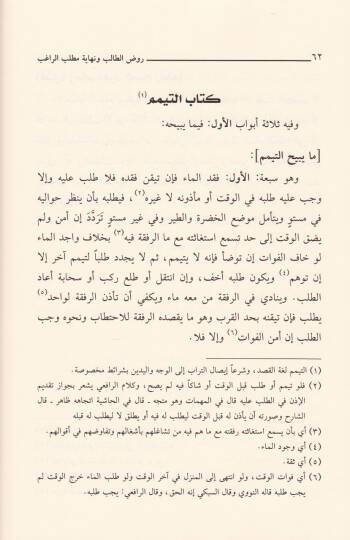 ٦٢
روض الطالب ونهاية مطلب الراغب
كتاب التيمم(١)
وفيه ثلاثة أبواب الأول: فيما يبيحه:
[ما يبيح التيمم]:
وهو سبعة: الأول: فقد الماء فإن تيقن فقده فلا طلب عليه وإلا
وجب عليه طلبه في الوقت أو مأذونه لا غيره(٢)، فيطلبه بأن ينظر حواليه
في مستوٍ ويتأمل موضع الخضرة والطير وفي غير مستوٍ تَرَدَّدَ إن أمن ولم
يضق الوقت إلى حد تسمع استغاثته مع ما الرفقة فيه(٣) بخلاف واجد الماء
لو خاف الفوات إن توضأ فإنه لا يتيمم، ثم لا يجدد طلباً لتيمم آخر إلا
إن توهم(٤) ويكون طلبه أخف، وإن انتقل أو طلع ركب أو سحابة أعاد
الطلب. وينادي في الرفقة من معه ماء ويكفي أن تأذن الرفقة لواحد(٥)
يطلب فإن تيقنه بحد القرب وهو ما يقصده الرفقة للاحتطاب ونحوه وجب
الطلب إن أمن الفوات(٦) وإلا فلا.
(١) التيمم لغة القصد، وشرعاً إيصال التراب إلى الوجه واليدين بشرائط مخصوصة.
(٢) فلو تيمم أو طلب قبل الوقت أو شاكاً فيه لم يصح، وكلام الرافعي يشعر بجواز تقديم
الإذن في الطلب عليه قال في المهمات وهو متجه ـ قال في الحاشية اتجاهه ظاهر ـ قال
الشارح وصورته أن يأذن له قبل الوقت ليطلب له فيه أو يطلق لا ليطلب له قبله
(٣) أي بأن يسمع استغاثته رفقته مع ما هم فيه من تشاغلهم بأشغالهم وتفاوضهم في أقوالهم.
(٤) أي وجود الماء.
(٥) أي ثقة.
(٦) أي فوات الوقت، ولو انتهى إلى المنزل في آخر الوقت ولو طلب الماء خرج الوقت لم
يجب طلبه قاله النووي وقال السبكي إنه الحق، وقال الرافعي: يجب طلبه.